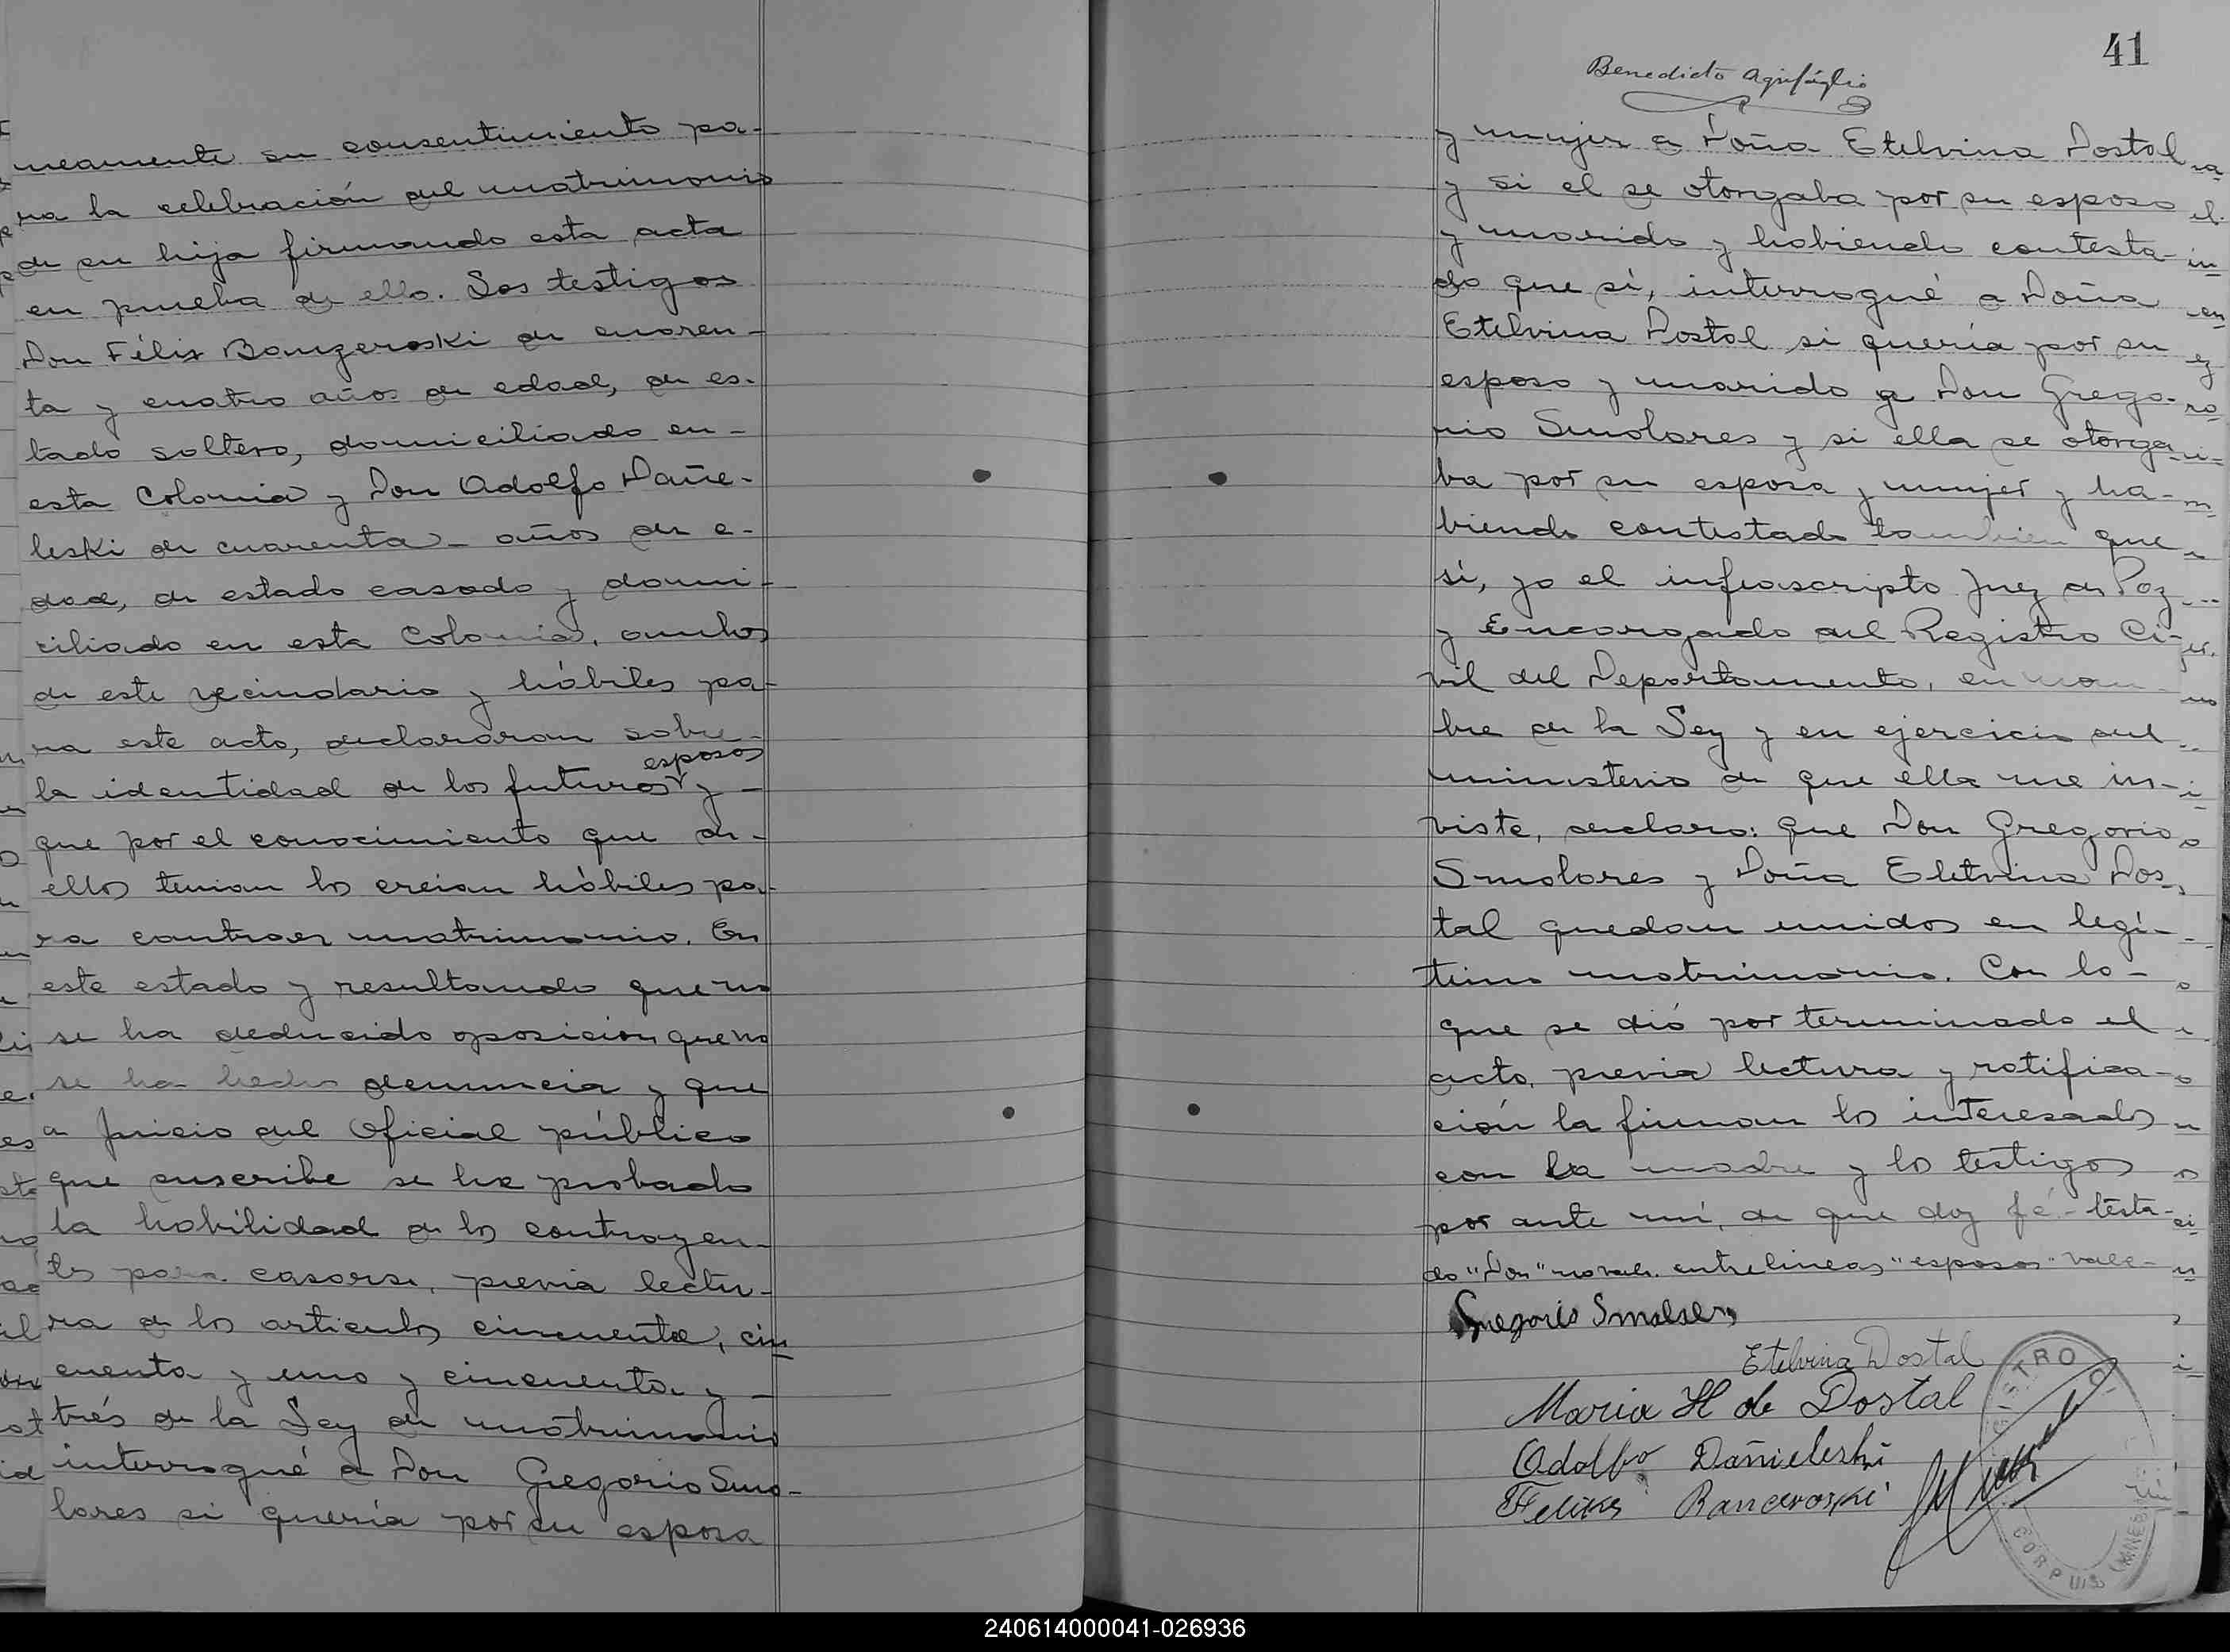 neamente su consentimiento pa-
ra la celebración del matrimonio
de su hija firmando esta acta
en prueba de ello. Los testigos
Don Félix Banzeroski de cuaren-
ta y cuatro años de edad, de es-
tado soltero, domiciliado en-
esta Colonia y Don Adolfo Dañe-
leski de cuarenta- años de e-
dad, de estado casado y domi-
ciliado en esta Colonia, ambos
de este vecindario y hábiles pa-
ra este acto, declararon sobre-
esposos
la identidad de los futuros y -
que por el conocimiento que de-
ellos tenian los creian hábiles pa-
ra contraer matrimonio. En
este estado y resultando que no
se ha deducido oposición que no
se ha hecho denuncia y que
a juicio del Oficial público
que suscribe se ha probado
la habilidad de los contrayen-
tes para casarse, previa lectu-
ra de los articulos cincuenta, cin
cuenta y uno y cincuenta y -
trés de la Ley de matrimonio
interrogué a Don Gregorio Smo-
lares si quería por su esposa
41
Benedicto Agrifóglio
y mujer a Doña Etelvina Dostal
y si el se otorgaba por su esposo
y marido y habiendo contesta-
do que sí, interrogué a Doña
Etelvina Dostal si quería por su
esposo y marido a Don Grego-
rio Smolares y si ella se otorga-
ba por su esposa y mujer y ha-
biendo contestado tambien que
sí, yo el infrascripto Juez de Paz
y Encargado del Registro Ci-
vil del Departamento, en nom-
bre de la Ley y en ejercicio del
ministerio de que ella me in-
viste, declaro: que Don Gregorio
Smolares y Doña Eletvina Dos-
tal quedan unidos en legí-
timo matrimonio. Con lo-
que se dió por terminado el
acto, previa lectura y ratifica-
ción la firman los interesados
con la madre y los testigos
por ante mí, de que doy fé.- testa-
do "Don" no vale. entrelineas "esposos" vale-
Gregorio Smolares
Etelvina Dostal
Maria H de Dostal
Adolfo Dañieleski
Feliks Banceroski
CORPUS (MNES)
240614000041-026936